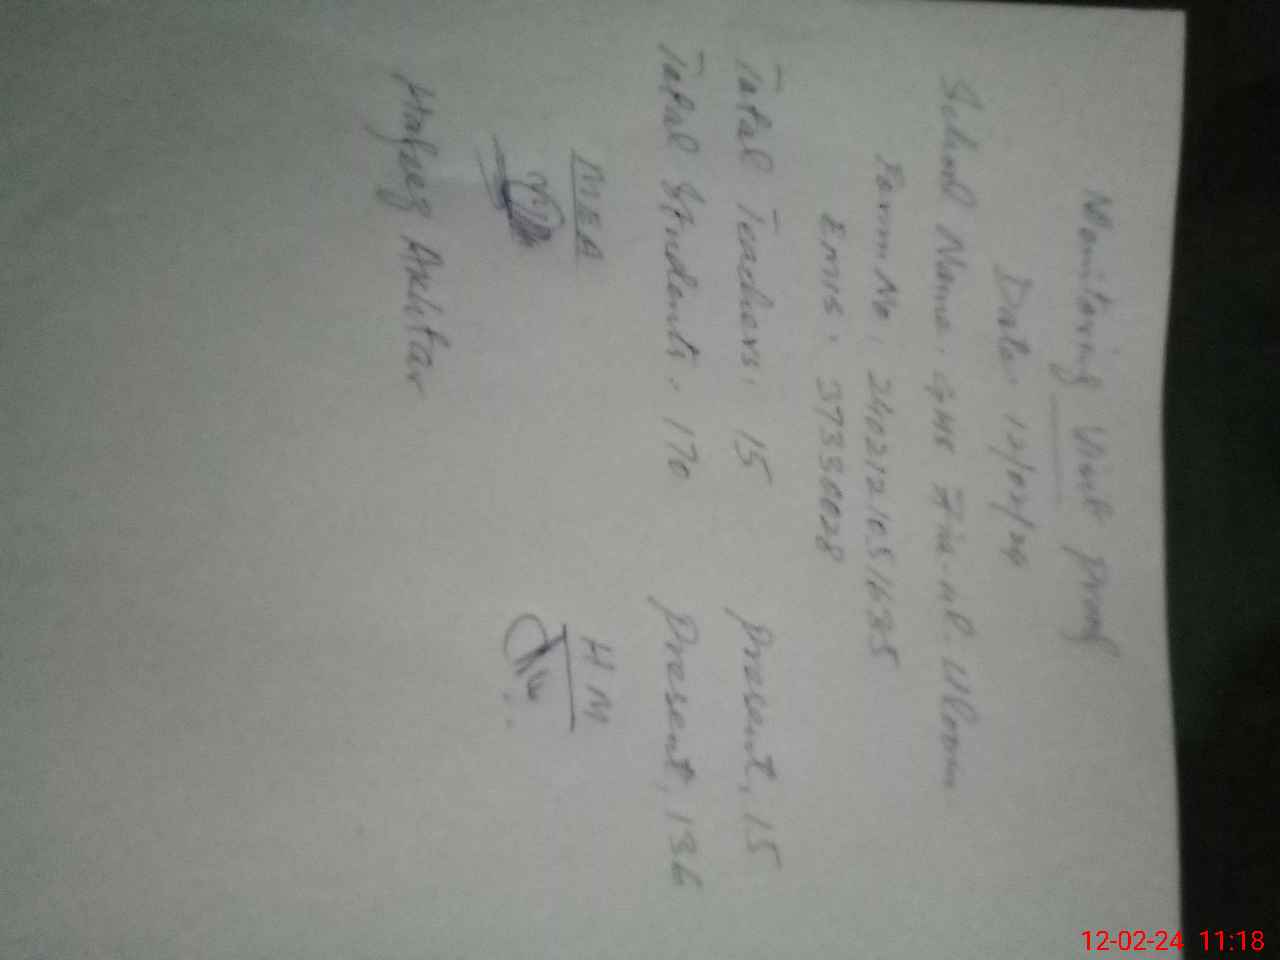 Monitoring Visit Proof
Date 12/02/24
School Name. GHS Zia-ul-Uloom
Form No. 2402121051635
EMIS. 37330028
Total Teachers. 15 Present, 15
Total Students. 170 Present, 136
MEA HM
Hafeez Akhtar
12-02-24 11:18